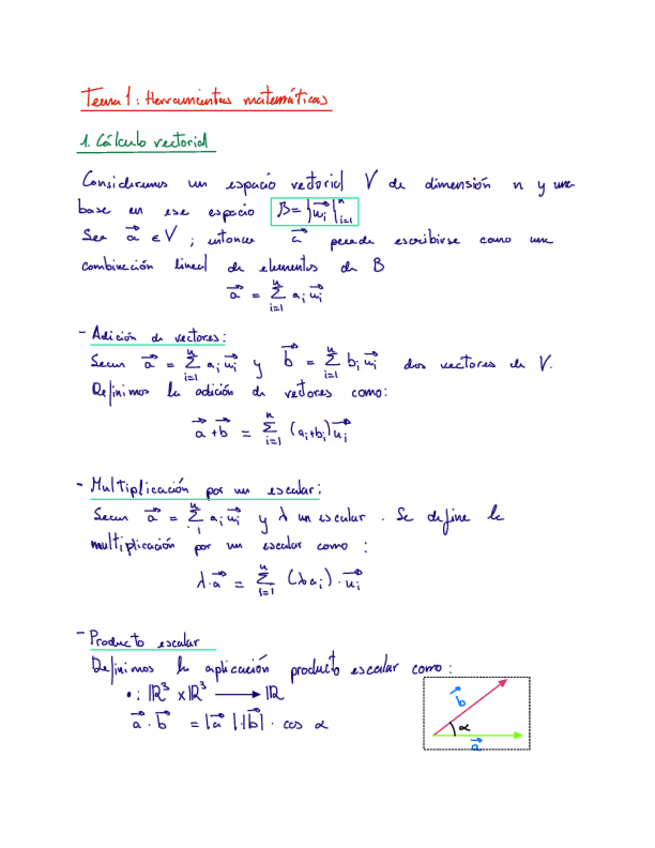 Tema 1: Herramientas matemáticas
1. Cálculo vectorial
Consideremos un espacio vectorial V de dimensión n y una
base en ese espacio B = {u⃗ᵢ}ⁿᵢ₌₁
Sea a⃗ ∈ V ; entonces a⃗ puede escribirse como una
combinación lineal de elementos de B
a⃗ = Σⁿᵢ₌₁ aᵢ u⃗ᵢ
- Adición de vectores:
Sean a⃗ = Σⁿᵢ₌₁ aᵢ u⃗ᵢ y b⃗ = Σⁿᵢ₌₁ bᵢ u⃗ᵢ dos vectores de V.
Definimos la adición de vectores como:
a⃗ + b⃗ = Σⁿᵢ₌₁ (aᵢ+bᵢ) u⃗ᵢ
- Multiplicación por un escalar:
Sean a⃗ = Σⁿᵢ₌₁ aᵢ u⃗ᵢ y λ un escalar. Se define la
multiplicación por un escalar como :
λ·a⃗ = Σⁿᵢ₌₁ (λaᵢ)·u⃗ᵢ
- Producto escalar
Definimos la aplicación producto escalar como:
• : ℝ³ x ℝ³ → ℝ
a⃗ · b⃗ = |a⃗|·|b⃗| · cos α
b⃗
α
a⃗